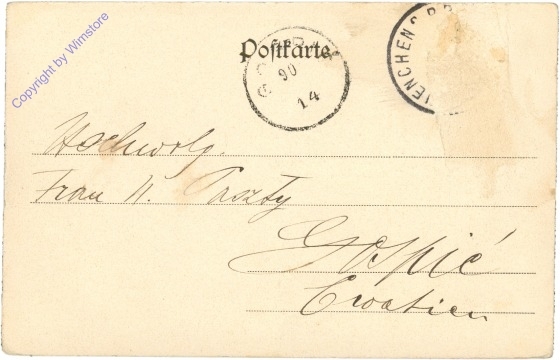 Copyright by Wimstore
Postkarte
90
14
Hochwolg.
Frau N. Paszty
Gospić
Croatien